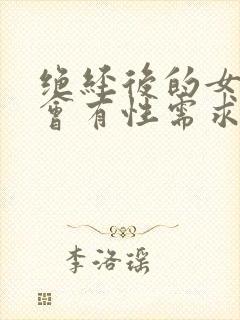 绝经后的女
会有性需求
李洛瑶